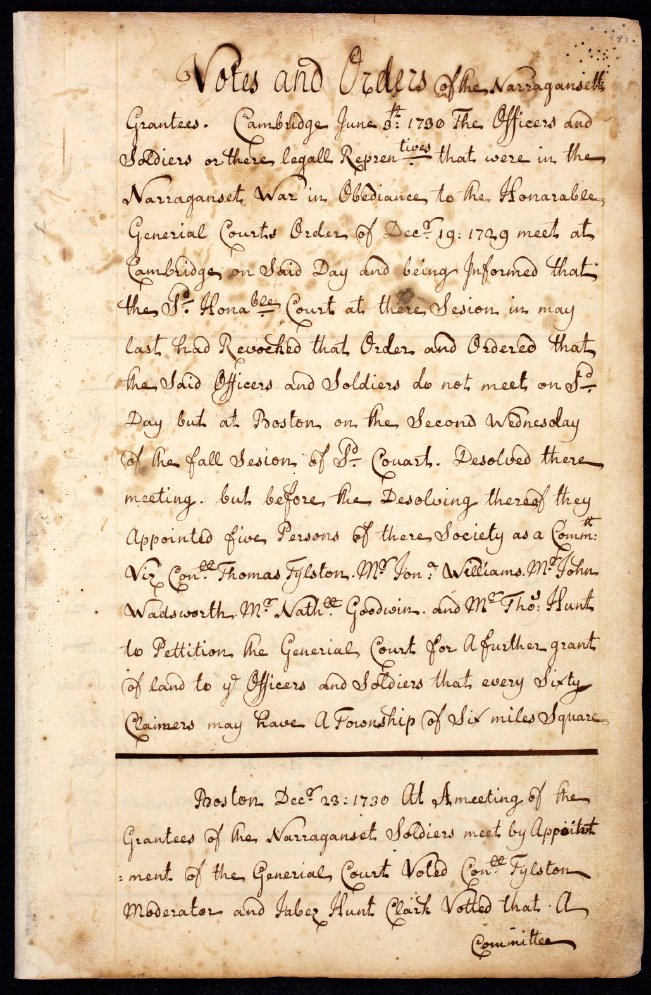 Votes and Orders of the Narragansett
Grantees. Cambridge June 3th: 1730 The Officers and
Soldiers or there legall Represen tives that were in the
Narraganset War in Obediance to the Honarable
Generial Courts Order of Decr 19: 1729 meet at
Cambridge on Said Day and being Informed that
the Sd. Honable Court at there Sesion in may
last had Revocked that Order and Ordered that
the Said Officers and Soldiers do not meet on Sd
Day but at Boston on the Second Wednesday
of the fall Sesion of Sd. Couart. Desolved there
meeting. but before the Desolving thereof they
Appointed five Persons of there Society as a Commtt:
Viz Conll. Thomas Tylston. Mr Jona Williams. Mr John
Wadsworth. Mr Nathll Goodwin. and Mr Thos: Hunt
to Pettition the Generial Court for A further grant
of land to ye Officers and Soldiers that every Sixty
Claimers may have A Township of Six miles Square
Boston Decr 23: 1730 At A meeting of the
Grantees of the Narraganset Soldiers meet by Appoint
:ment of the Generial Court Voted Conll Tylston
Moderator and Jabez Hunt Clark Votted that A
Committee